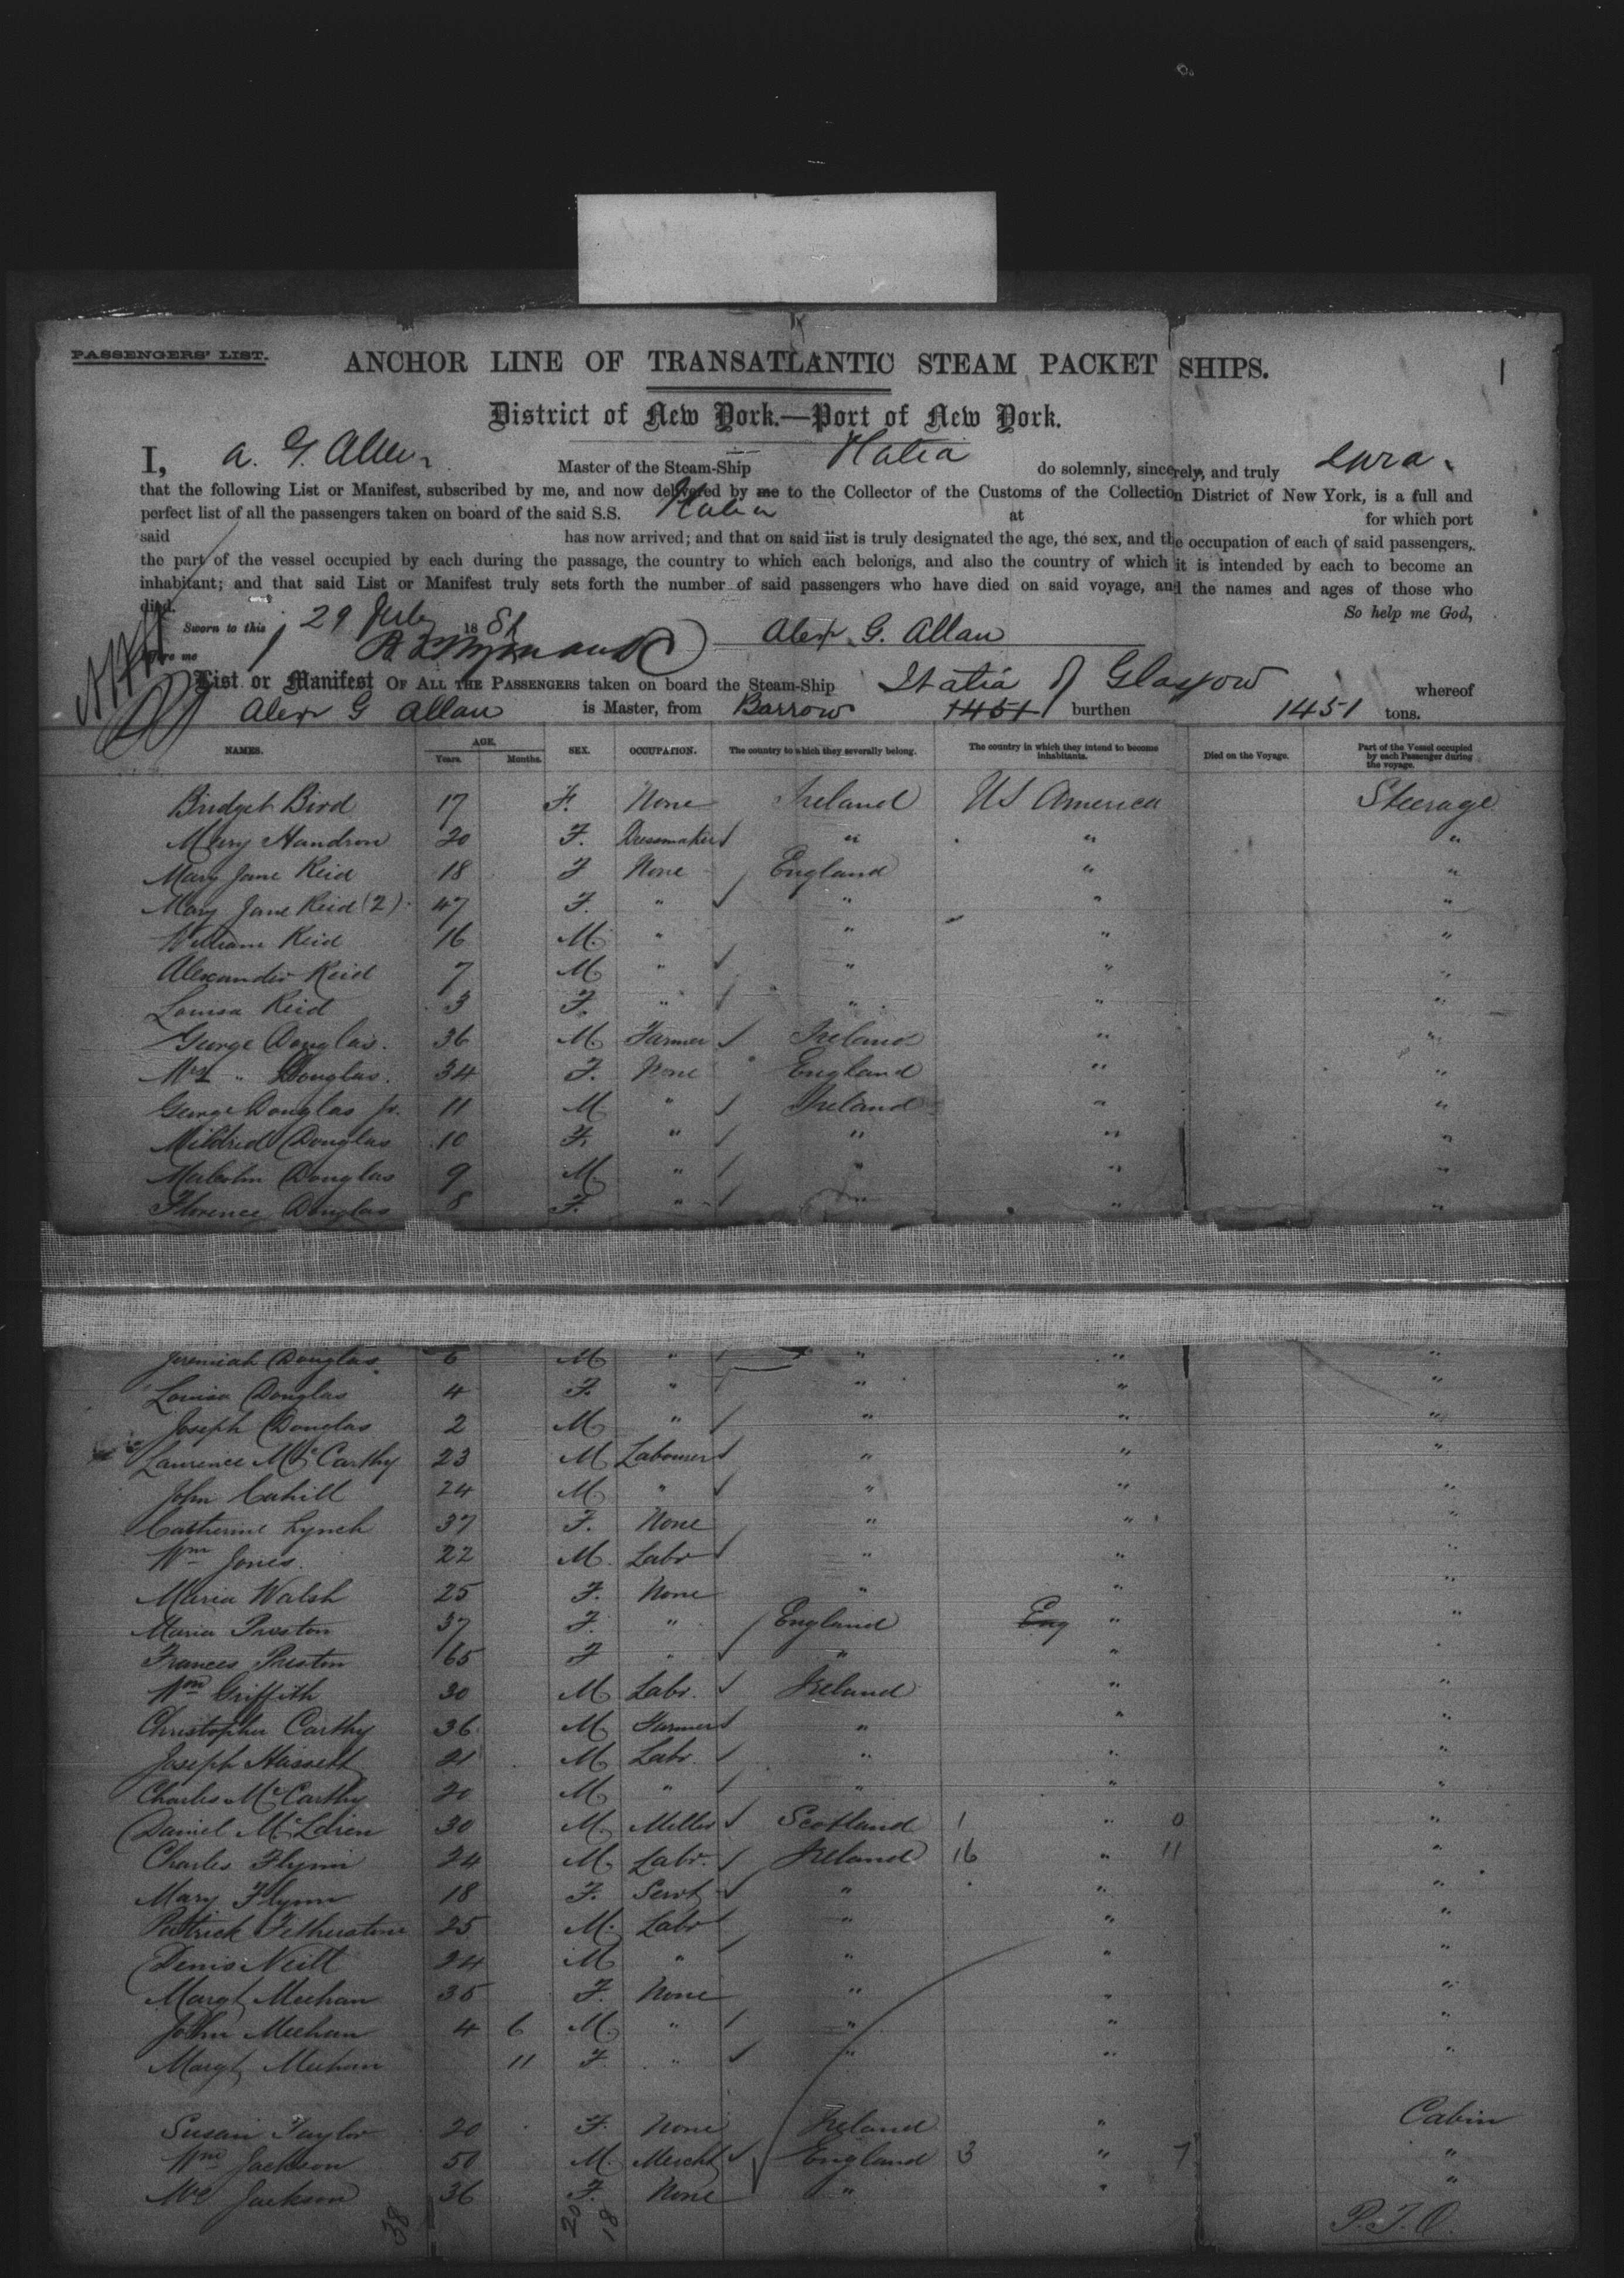 PASSENGERS' LIST.
ANCHOR LINE OF TRANSATLANTIC STEAM PACKET SHIPS. 1
District of New York.—Port of New York.
I, A. G. Allen Master of the Steam-Ship Italia do solemnly, sincerely, and truly swra
that the following List or Manifest, subscribed by me, and now delivered by me to the Collector of the Customs of the Collection District of New York, is a full and
perfect list of all the passengers taken on board of the said S.S. Italia at for which port
said has now arrived; and that on said list is truly designated the age, the sex, and the occupation of each of said passengers,
the part of the vessel occupied by each during the passage, the country to which each belongs, and also the country of which it is intended by each to become an
inhabitant; and that said List or Manifest truly sets forth the number of said passengers who have died on said voyage, and the names and ages of those who
died. So help me God,
Sworn to this 29 July 1881 Alexr G. Allan
before me
List or Manifest OF ALL THE PASSENGERS taken on board the Steam-Ship Italia of Glasgow whereof
Alexr G Allan is Master, from Barrow 1451 burthen 1451 tons.
NAMES. AGE. Years. Months. SEX. OCCUPATION. The country to which they severally belong. The country in which they intend to become inhabitants. Died on the Voyage. Part of the Vessel occupied by each Passenger during the voyage.
Bridget Bird 17 F. None Ireland US America Steerage
Mary Handron 20 F. Dressmaker " " "
Mary Jane Reid 18 F None England " "
Mary Jane Reid (2) 47 F. " " " "
William Reid 16 M. " " " "
Alexander Reid 7 M " " " "
Louisa Reid 3 F. " " " "
George Douglas. 36 M Farmer Ireland " "
Mrs " Douglas. 34 F. None England " "
George Douglas Jr. 11 M " Ireland " "
Mildred Douglas 10 F. " " " "
Malcolm Douglas 9 M. " " " "
Florence Douglas 8 F. " " " "
Jeremiah Douglas 6 M " " " "
Louisa Douglas 4 F. " " " "
Joseph Douglas 2 M " " " "
Laurence McCarthy 23 M Labourer " " "
John Cahill 24 M " " " "
Catherine Lynch 37 F. None " " "
Wm Jones. 22 M. Labr " " "
Maria Walsh 25 F. None " " "
Maria Preston 37 F. " England Eng " "
Frances Preston 65 F " " " "
Wm Griffith 30 M Labr. Ireland " "
Christopher Carthy 36 M Farmer " " "
Joseph Hassett 21 M Labr. " " "
Charles McCarthy 20 M " " " "
Daniel 30 M. Miller Scotland 1 " 0 "
Charles Flynn 24 M. Labr. Ireland 16 " 11 "
Mary Flynn 18 F. Servt " " "
Patrick 25 M. Labr " " "
Denis Neill 24 M " " " "
Margt Meehan 35 F. None " " "
John Meehan 4 6 M. " " " "
Margt Meehan 11 F. " " " "
Susan Taylor 20 F. None Ireland " Cabin
Wm Jackson 50 M. Mercht England 3 " 7 "
Mrs Jackson 36 F. None " " "
38 20 18 P.T.O.